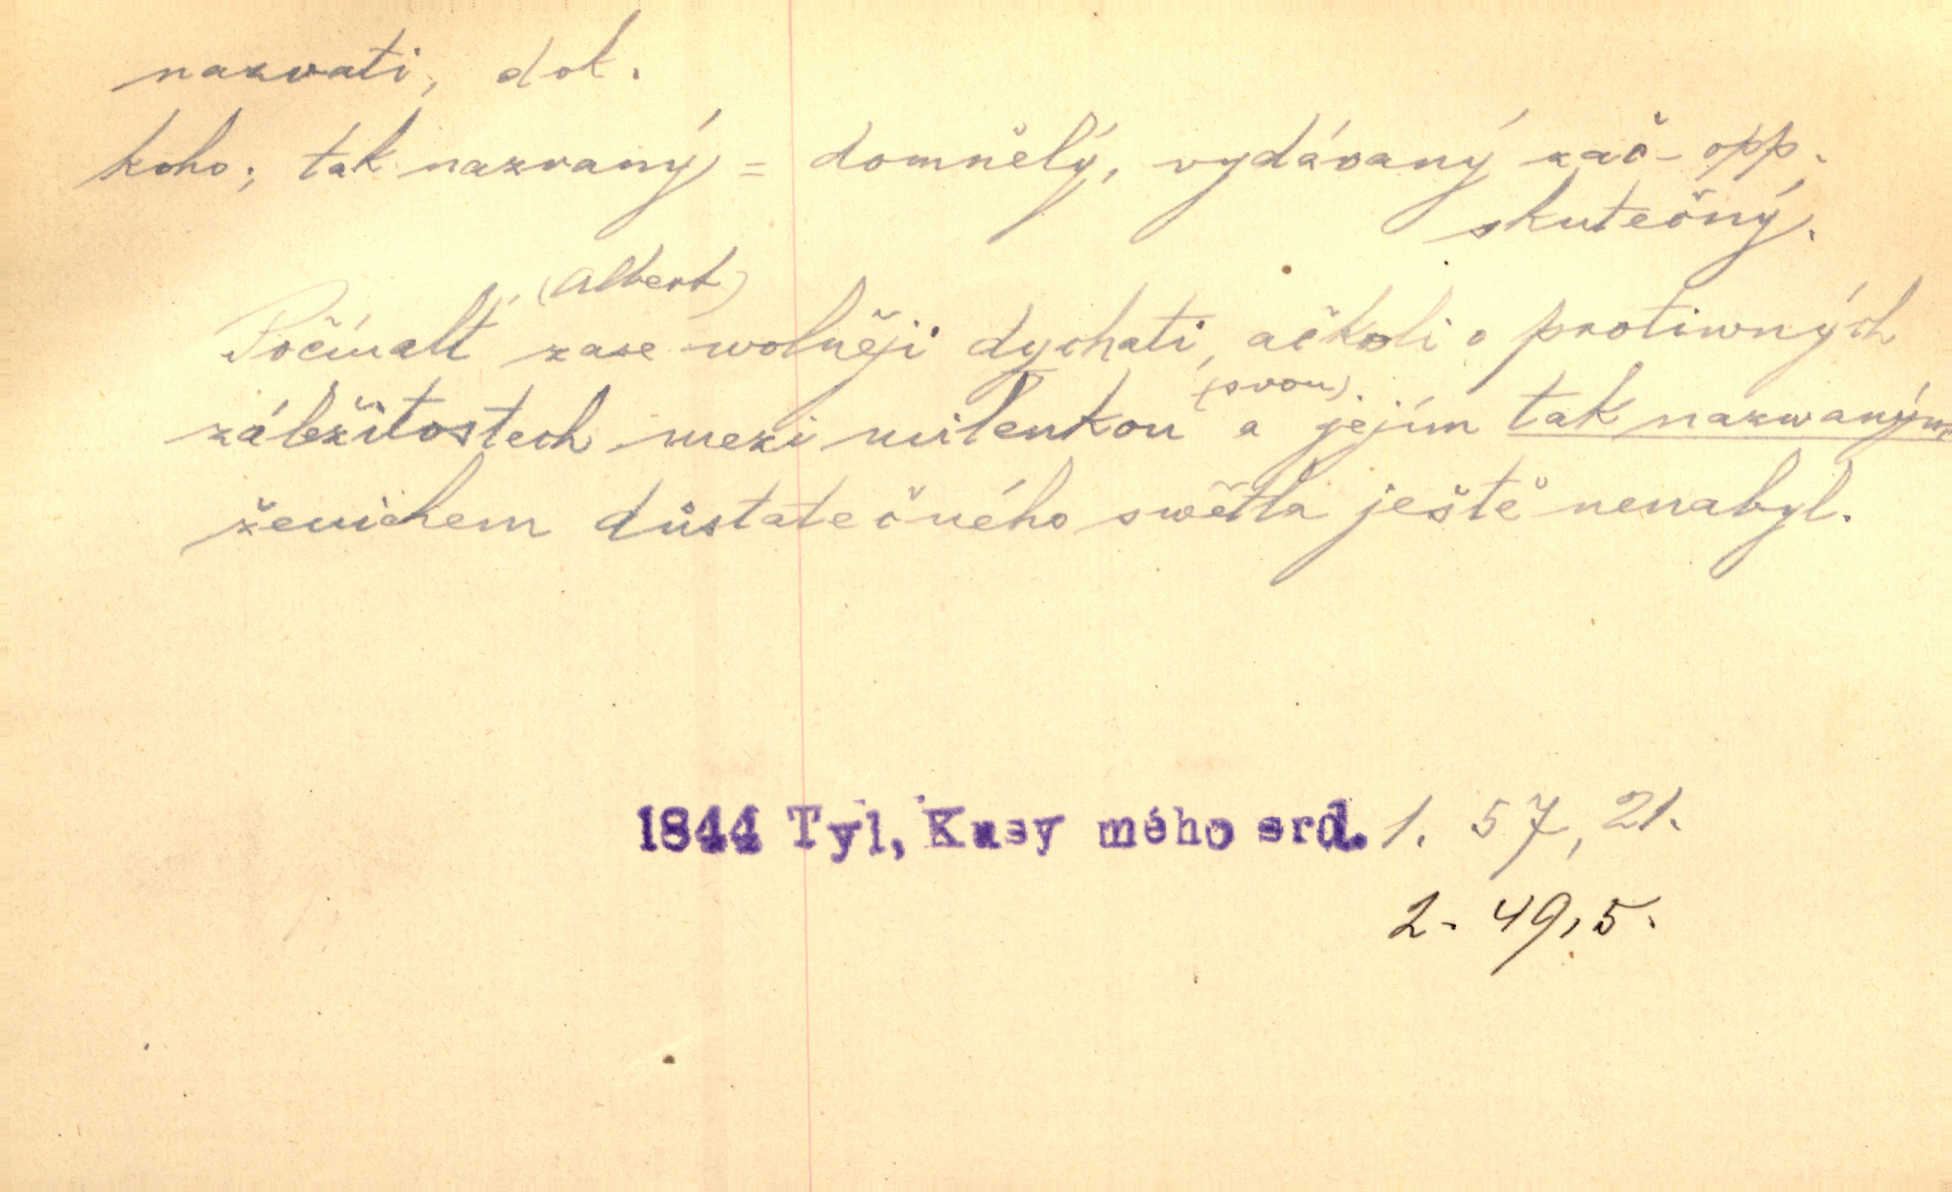 nazvati, dok.
koho; tak nazvaný = domnělý, vydávaný zač - opp.
skutečný.
(Albert)
Počínalť zase wolněji dychati, ačkoli o protiwných
(svou)
záležitostech mezi milenkou a jejím tak nazwaným
ženichem důstatečného swětla ještě nenabyl.
1844 Tyl, Kusy mého srd. 1. 57, 21.
2. 49, 5.